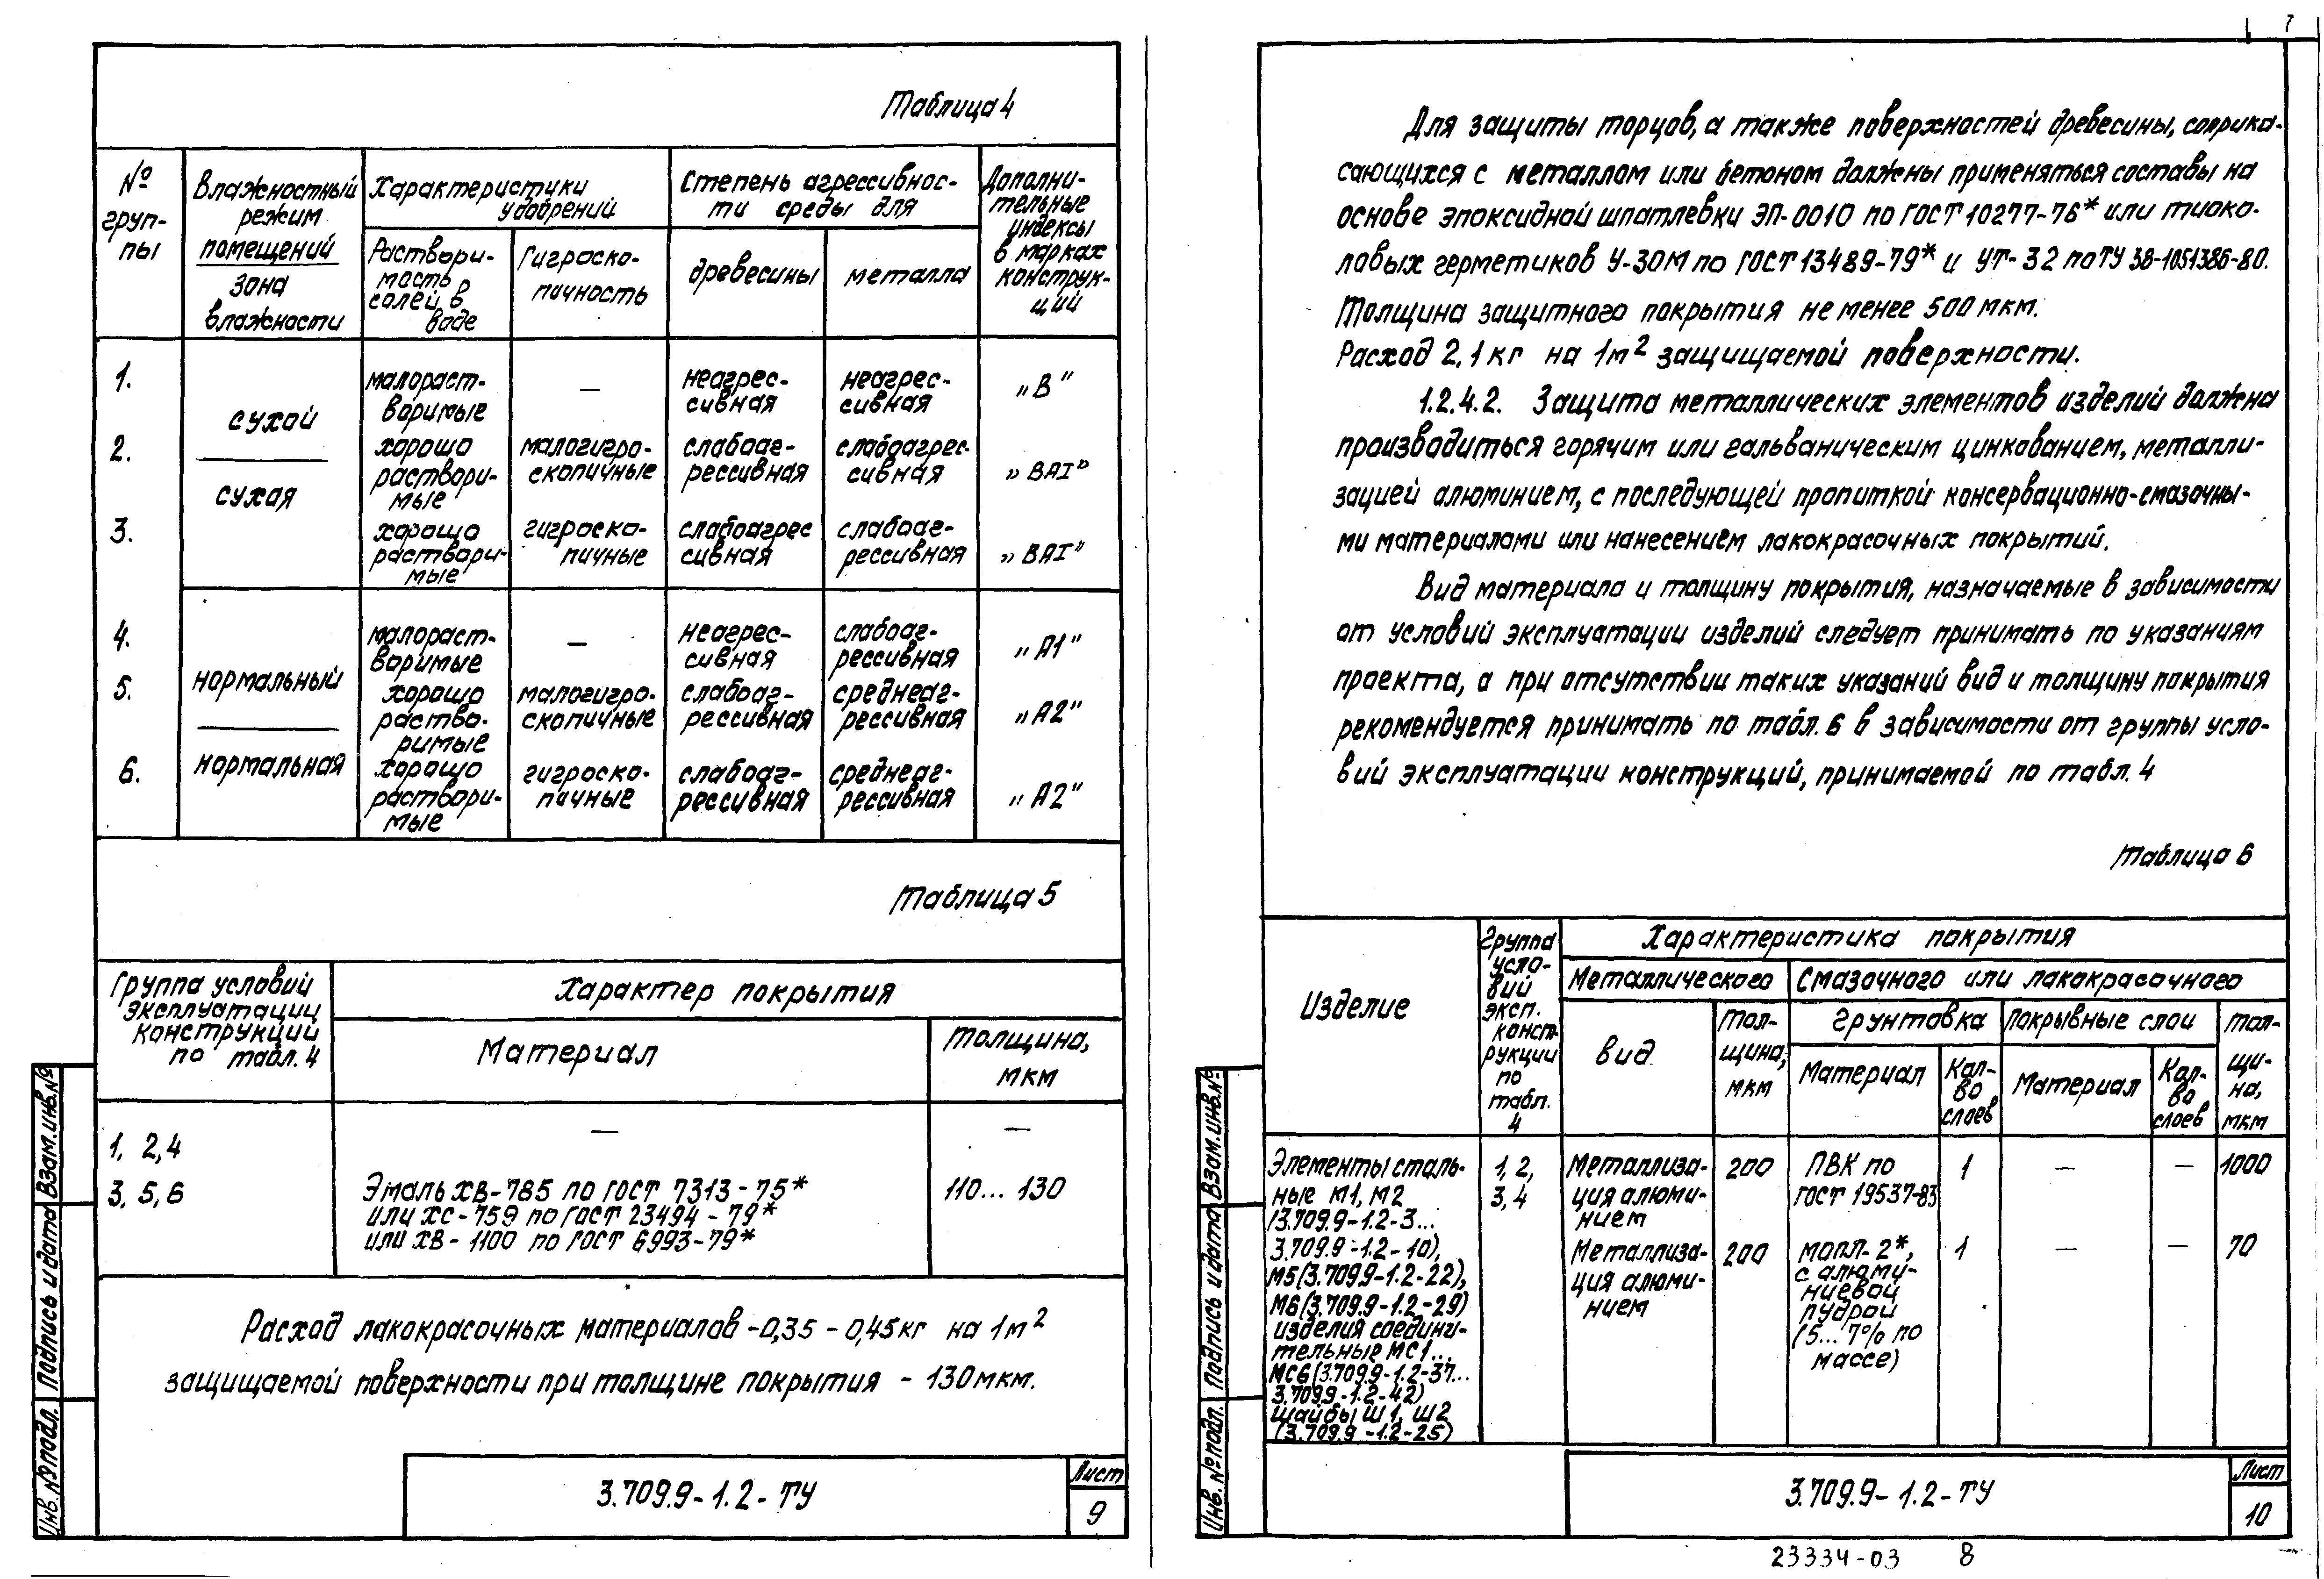 Таблица 4
№ груп-
пы
Влажностный
режим
помещений
зона
влажности
Характеристики
удобрений
Степень агрессивнос-
ти среды для
Дополни-
тельные
индексы
в марках
конструк-
ций
Раствори-
мость
солей в
воде
Гигроско-
пичность
древесины
металла
1.
сухой
сухая
малораст-
воримые
—
неагрес-
сивная
неагрес-
сивная
„В"
2.
хорошо
раствори-
мые
малогигро-
скопичные
слабоаг-
рессивная
слабоагрес-
сивная
„ВАI"
3.
хорошо
раствори-
мые
гигроско-
пичные
слабоагрес
сивная
слабоаг-
рессивная
„ВАI"
4.
нормальный
нормальная
малораст-
воримые
—
неагрес-
сивная
слабоаг-
рессивная
„А1"
5.
хорошо
раство-
римые
малогигро-
скопичные
слабоаг-
рессивная
среднеаг-
рессивная
„А2"
6.
хорошо
раствори-
мые
гигроско-
пичные
слабоаг-
рессивная
среднеаг-
рессивная
„А2"
Таблица 5
Группа условий
эксплуатации
конструкций
по табл. 4
Характер покрытия
Материал
Толщина,
мкм
1, 2,4
—
—
3, 5, 6
Эмаль ХВ-785 по ГОСТ 7313-75*
или ХС-759 по ГОСТ 23494-79*
или ХВ-1100 по ГОСТ 6993-79*
110... 130
Расход лакокрасочных материалов -0,35-0,45кг на 1м²
защищаемой поверхности при толщине покрытия - 130мкм.
Инв. № подл. Подпись и дата Взам. инв. №
3.709.9-1.2-ТУ
Лист
9
7
Для защиты торцов, а также поверхностей древесины, соприка-
сающихся с металлом или бетоном должны применяться составы на
основе эпоксидной шпатлевки ЭП-0010 по ГОСТ 10277-76* или тиоко-
ловых герметиков У-30М по ГОСТ 13489-79* и УТ-32 по ТУ 38-1051386-80.
Толщина защитного покрытия не менее 500 мкм.
Расход 2.1кг на 1м² защищаемой поверхности.
1.2.4.2. Защита металлических элементов изделий должна
производиться горячим или гальваническим цинкованием, металли-
зацией алюминием, с последующей пропиткой консервационно-смазочны-
ми материалами или нанесением лакокрасочных покрытий.
Вид материала и толщину покрытия, назначаемые в зависимости
от условий эксплуатации изделий следует принимать по указаниям
проекта, а при отсутствии таких указаний вид и толщину покрытия
рекомендуется принимать по табл. 6 в зависимости от группы усло-
вий эксплуатации конструкций, принимаемой по табл. 4
Таблица 6
Изделие
Группа
усло-
вий
эксп.
конст-
рукции
по
табл.
4
Характеристика покрытия
Металлического
Смазочного или лакокрасочного
вид
Тол-
щина,
мкм
Грунтовка
Покрывные слои
Тол-
щи-
на,
мкм
Материал
Кол-
во
слоев
Материал
Кол-
во
слоев
Элементы сталь-
ные М1, М2
(3.709.9-1.2-3...
3.709.9-1.2-10),
М5(3.709.9-1.2-22),
М6(3.709.9-1.2-29)
изделия соедини-
тельные МС1...
МС6(3.709.9-1.2-37...
3.709.9-1.2-42)
шайбы Ш1, Ш2
(3.709.9-1.2-25)
1, 2,
3, 4
Металлиза-
ция алюми-
нием
200
ПВК по
ГОСТ 19537-83
1
—
—
1000
Металлиза-
ция алюми-
нием
200
МОПЛ-2*,
с алюми-
ниевой
пудрой
(5...7% по
массе)
1
—
—
70
Инв. № подл. Подпись и дата Взам. инв. №
3.709.9-1.2-ТУ
Лист
10
23334-03 8